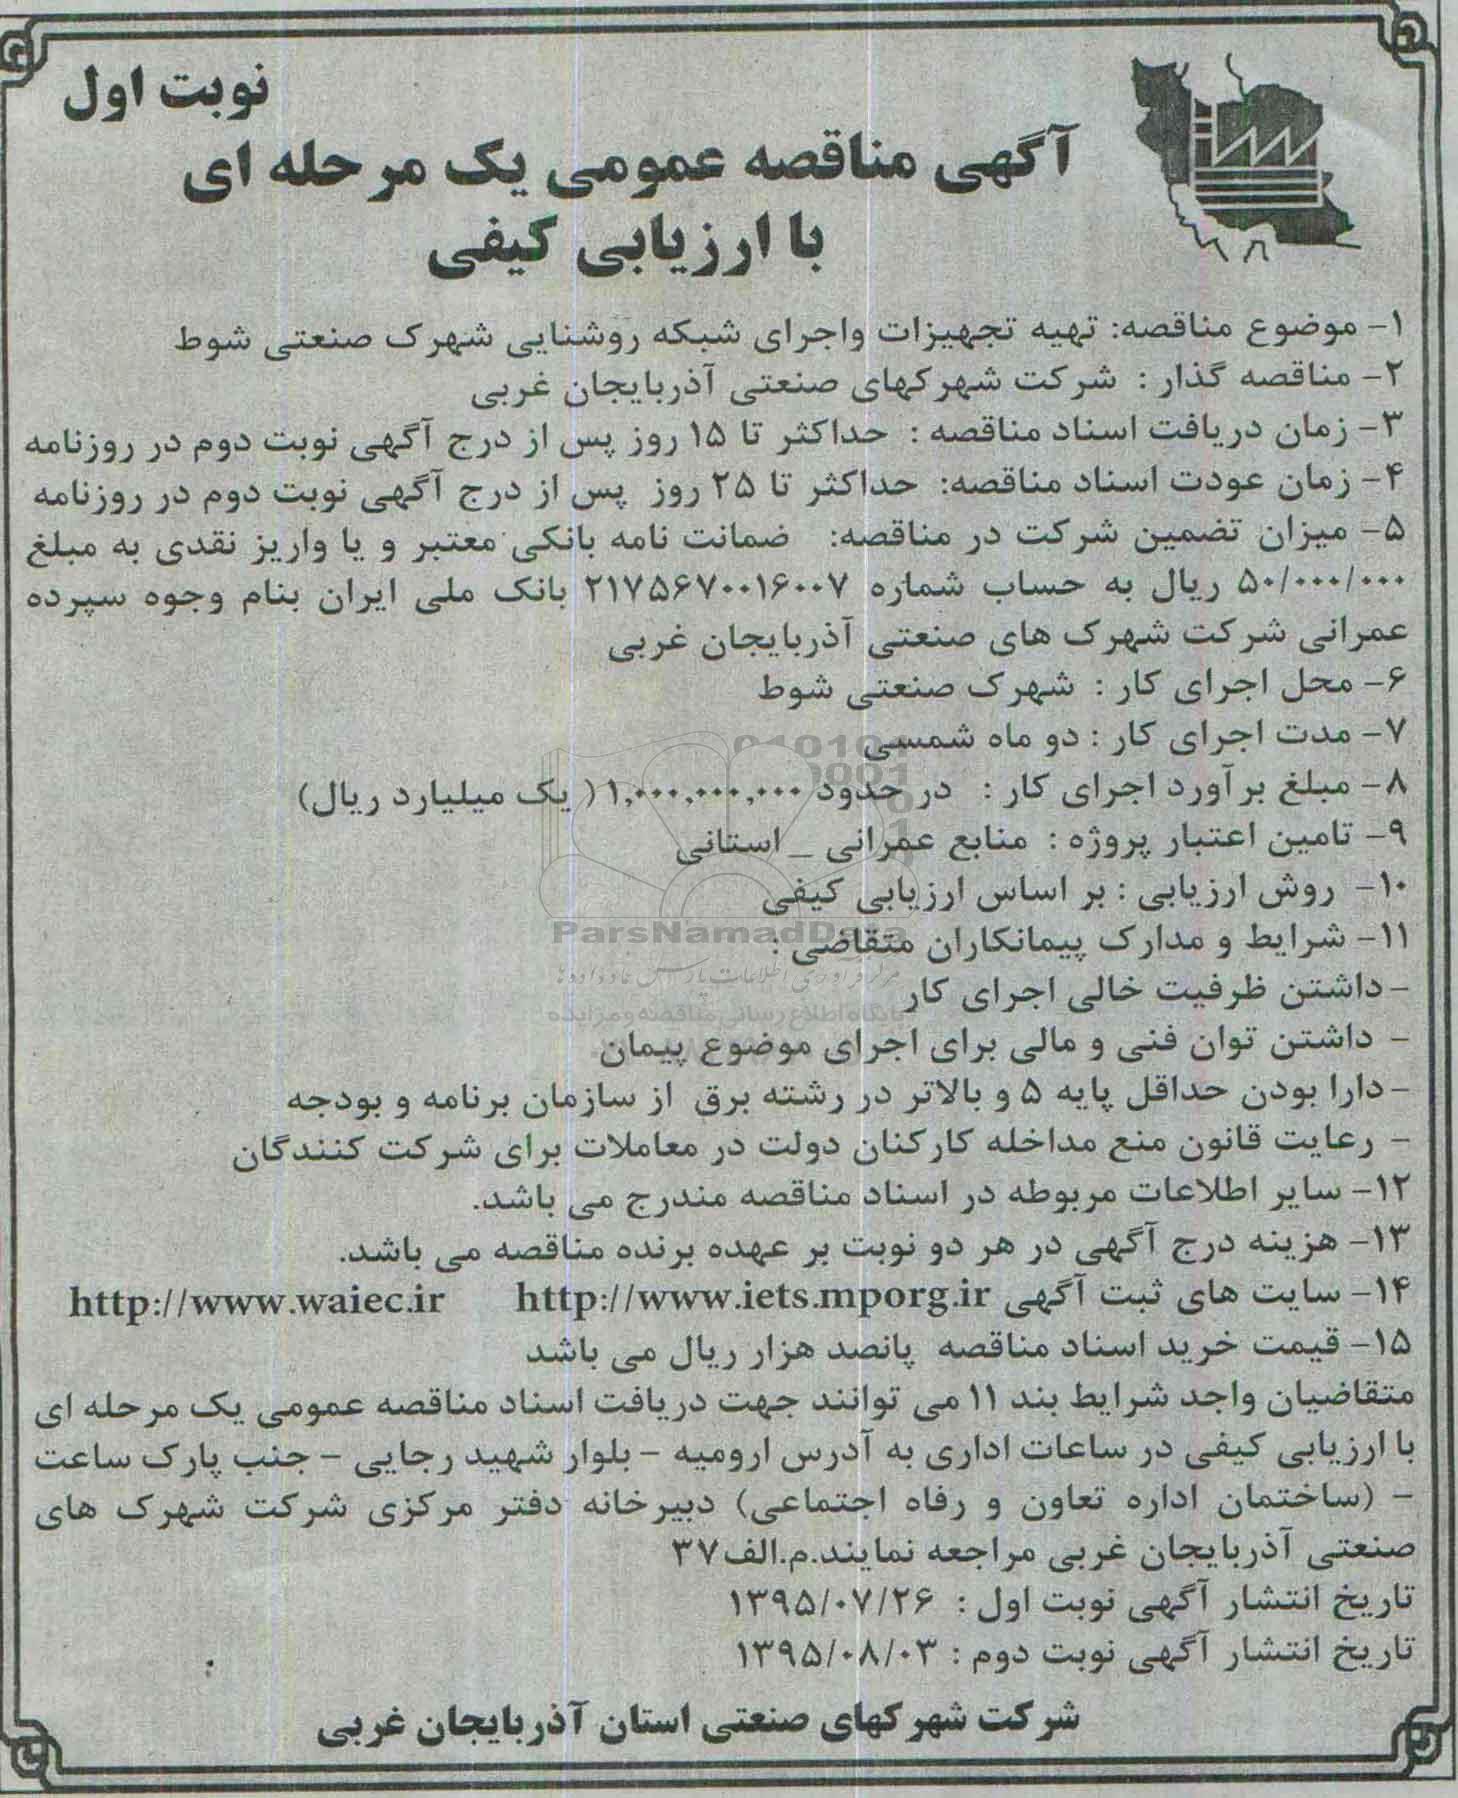 نوبت اول
آگهی مناقصه عمومی یک مرحله ای
با ارزیابی کیفی
۱- موضوع مناقصه: تهیه تجهیزات واجرای شبکه روشنایی شهرک صنعتی شوط
۲- مناقصه گذار : شرکت شهرکهای صنعتی آذربایجان غربی
۳- زمان دریافت اسناد مناقصه : حداکثر تا ۱۵ روز پس از درج آگهی نوبت دوم در روزنامه
۴- زمان عودت اسناد مناقصه: حداکثر تا ۲۵ روز پس از درج آگهی نوبت دوم در روزنامه
۵- میزان تضمین شرکت در مناقصه: ضمانت نامه بانکی معتبر و یا واریز نقدی به مبلغ
۵۰/۰۰۰/۰۰۰ ریال به حساب شماره ۲۱۷۵۶۷۰۰۱۶۰۰۷ بانک ملی ایران بنام وجوه سپرده
عمرانی شرکت شهرک های صنعتی آذربایجان غربی
۶- محل اجرای کار : شهرک صنعتی شوط
۷- مدت اجرای کار : دو ماه شمسی
۸- مبلغ برآورد اجرای کار : در حدود ۱,۰۰۰,۰۰۰,۰۰۰ ( یک میلیارد ریال)
۹- تامین اعتبار پروژه : منابع عمرانی _ استانی
۱۰- روش ارزیابی : بر اساس ارزیابی کیفی
۱۱- شرایط و مدارک پیمانکاران متقاضی :
ParsNamadData
- داشتن ظرفیت خالی اجرای کار
پایگاه اطلاع رسانی مناقصه و مزایده
- داشتن توان فنی و مالی برای اجرای موضوع پیمان
- دارا بودن حداقل پایه ۵ و بالاتر در رشته برق از سازمان برنامه و بودجه
- رعایت قانون منع مداخله کارکنان دولت در معاملات برای شرکت کنندگان
۱۲- سایر اطلاعات مربوطه در اسناد مناقصه مندرج می باشد.
۱۳- هزینه درج آگهی در هر دو نوبت بر عهده برنده مناقصه می باشد.
۱۴- سایت های ثبت آگهی http://www.iets.mporg.ir http://www.waiec.ir
۱۵- قیمت خرید اسناد مناقصه پانصد هزار ریال می باشد
متقاضیان واجد شرایط بند ۱۱ می توانند جهت دریافت اسناد مناقصه عمومی یک مرحله ای
با ارزیابی کیفی در ساعات اداری به آدرس ارومیه - بلوار شهید رجایی - جنب پارک ساعت
- (ساختمان اداره تعاون و رفاه اجتماعی) دبیرخانه دفتر مرکزی شرکت شهرک های
صنعتی آذربایجان غربی مراجعه نمایند.م.الف۳۷
تاریخ انتشار آگهی نوبت اول : ۱۳۹۵/۰۷/۲۶
تاریخ انتشار آگهی نوبت دوم : ۱۳۹۵/۰۸/۰۳
شرکت شهرکهای صنعتی استان آذربایجان غربی